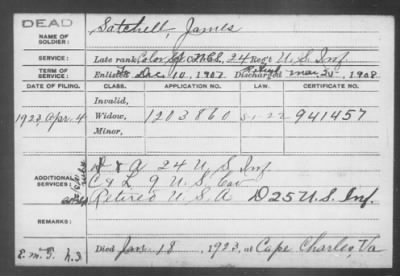 DEAD
NAME OF SOLDIER: Satchell, James
SERVICE: Late rank, Color Sgt N.C.S., 24 Reg't U.S. Inf
TERM OF SERVICE: Enlisted Dec 10, 1907 Discharged Retired Mar 31, 1908
DATE OF FILING. CLASS. APPLICATION NO. LAW. CERTIFICATE NO.
Invalid,
1923, Apr. 4 Widow, 1203860 941457
Minor,
ADDITIONAL SERVICES: & A 24 U.S. Inf.
C & L 9 U.S. Cav
Retired U.S.A. D 25 U.S. Inf.
REMARKS:
Died Jan. 18, 1923, at Cape Charles, Va